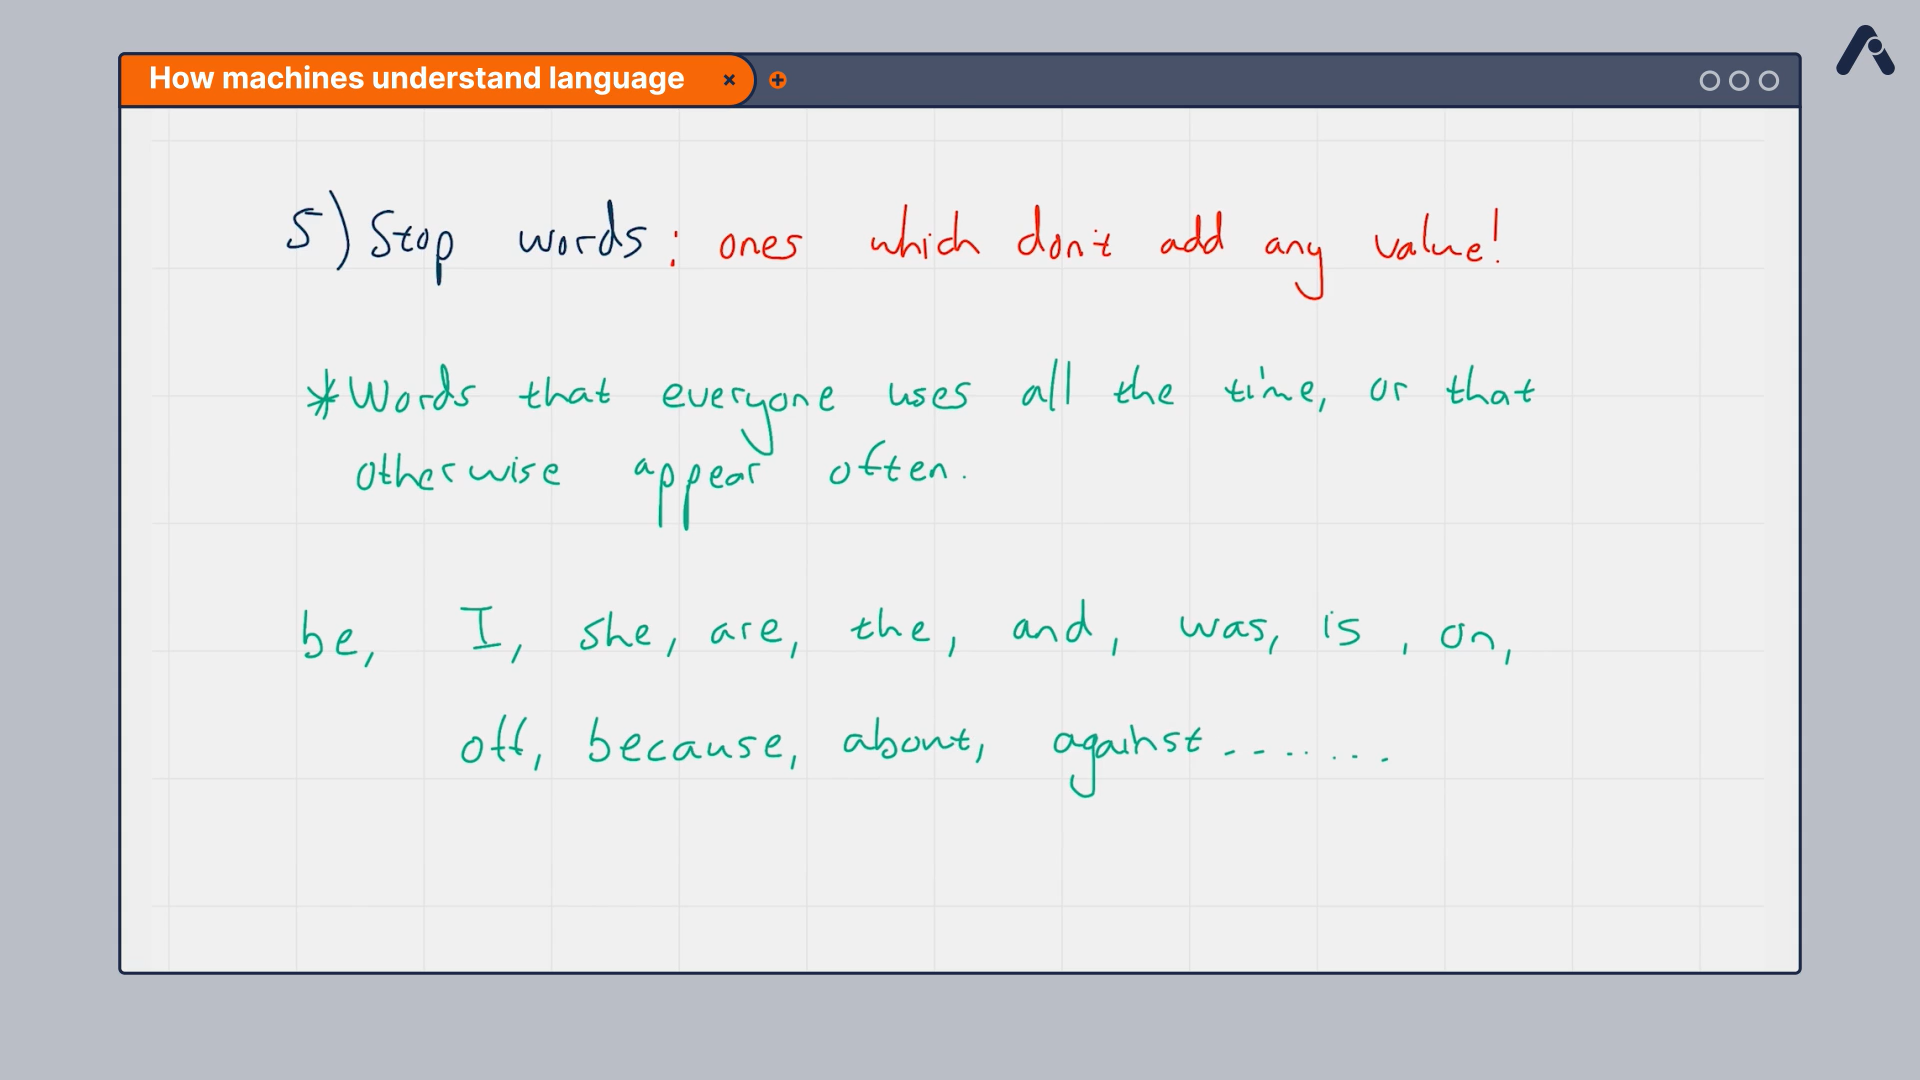 How machines understand language
5) Stop words: ones which don't add any value!
*Words that everyone uses all the time, or that
otherwise appear often.
be, I, she, are, the, and, was, is, on,
off, because, about, against.......